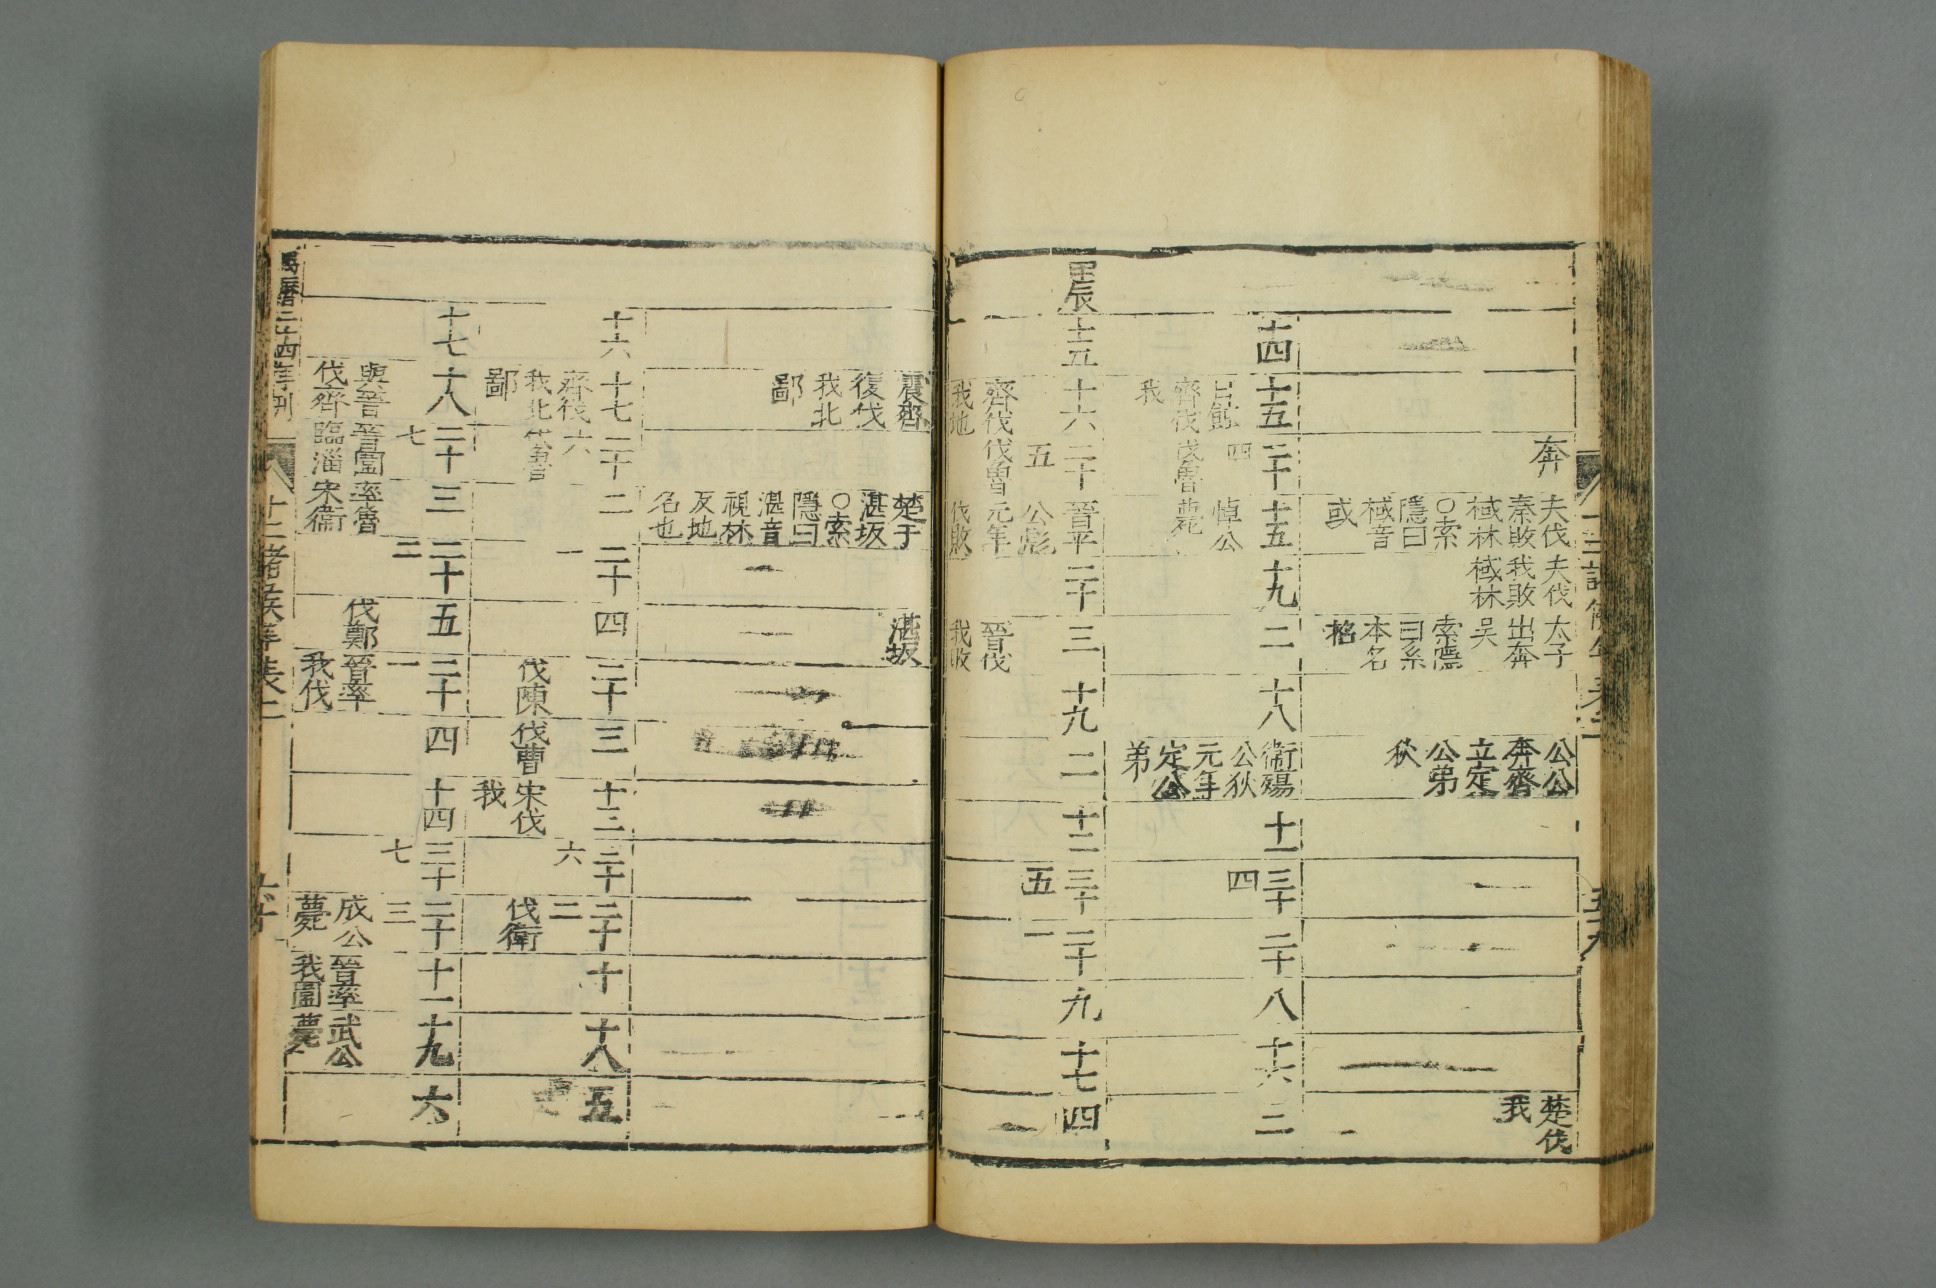 奔
夫伐
秦敗
棫林
○索
隱曰
棫音
或
夫伐
我敗
棫林
太子
出奔
吳
索隱
曰系
本名
格
公公
奔齊
立定
公弟
狄
楚伐
我
十四
十五
齊伐
我
二十
四
伐魯
十五
悼公
薨
十九
二
十八
衞殤
公狄
元年
定公
弟
十一
三十
四
二十
八
十六
二
壬辰
十五
十六
齊伐
我地
二十
五
伐魯
晉平
公彪
元年
伐敗
二十
三
晉伐
我敗
十九
二
十二
三十
五
二十
一
九
十七
四
震齊
復伐
我北
鄙
楚于
湛坂
○索
隱曰
湛音
視林
反地
名也
湛坂
十六
十七
齊伐
我北
鄙
二十
六
伐魯
二
二十
一
四
二十
伐陳
三
伐曹
十三
宋伐
我
三十
六
二十
二
伐衛
十
十八
五
十七
十八
與晉
伐齊
二十
七
晉圍
臨淄
三
率魯
宋衞
二十
二
五
伐鄭
二十
一
晉率
我伐
四
十四
三十
七
二十
三
成公
薨
十一
晉率
我圍
十九
武公
薨
六
萬曆二十四年刊
十二諸侯年表二
六十